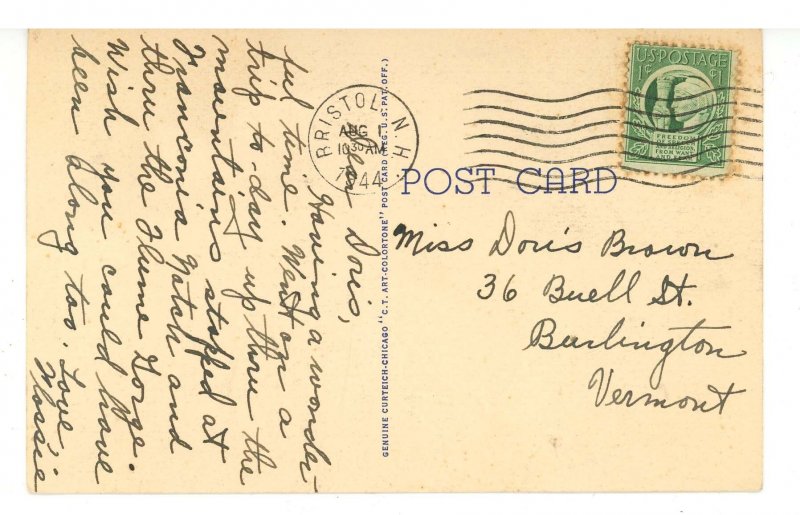 Dear Doris,
Having a wonder-
ful time. Went on a
trip to-day up thru the
mountains stopped at
Franconia Notch and
thru the Flume Gorge.
Wish you could have
been along too. Love,
BRISTOL N.H.
AUG 1
10 30 AM
1944
U.S. POSTAGE
1¢ ¢1
FREEDOM
RELIGION
FROM WANT
POST CARD
GENUINE CURTEICH-CHICAGO "C.T. ART-COLORTONE" POST CARD (REG. U.S. PAT. OFF.)
Miss Doris Brown
36 Buell St.
Burlington
Vermont